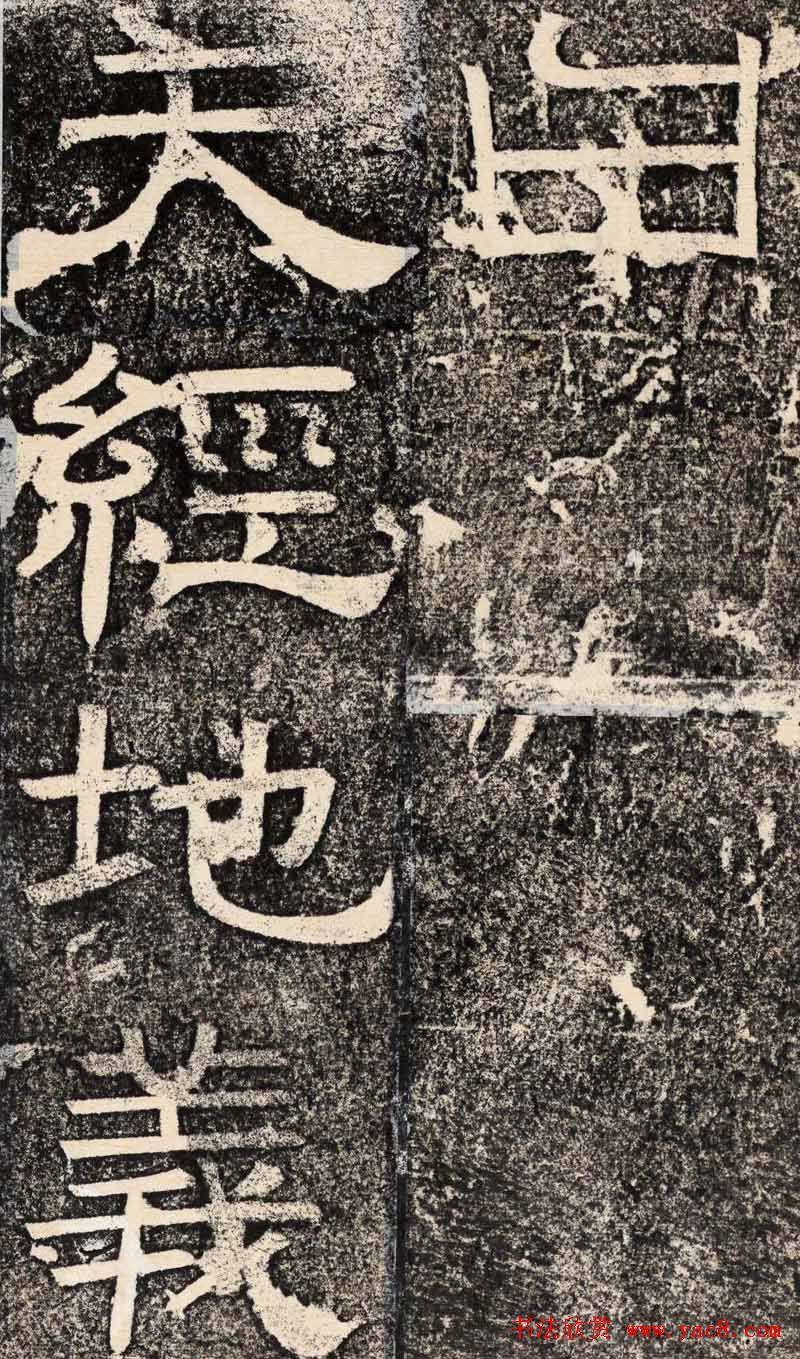 夫經地義
书法欣赏 www.yac8.com